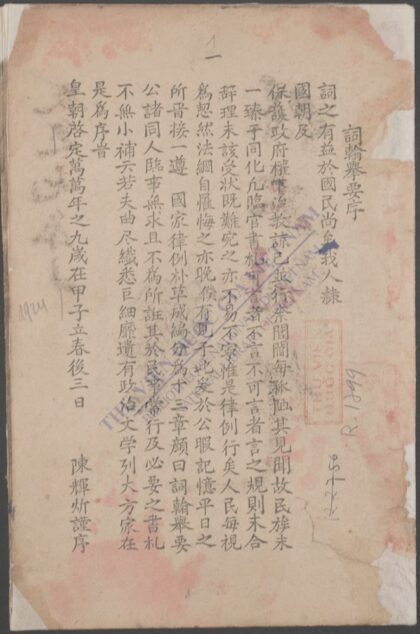 詞翰舉要序
詞之有益於國民尚矣我人隸
國朝及
保護政府權下治教諒已並行第閭閻每狃其見聞故民族未
一臻乎同化凡臨官書札可言者不言不可言者言之規則未合
辭理未該受狀既難究之亦不易不寧惟是律例行矣人民每視
為恝然法網自罹悔之亦晚僕有見于此爰於公暇記憶平日之
所晋接一遵國家律例朴草成編分為十三章顏曰詞翰舉要
公諸同人臨事無求且不為所詿其於民事常行及必要之書札
不無小補云若夫曲尽纖悉巨細靡遺有政治文学列大方家在
是為序旹
皇朝啓定萬萬年之九歲在甲子立春後三日
陳輝炘謹序
一
1924
R.1899